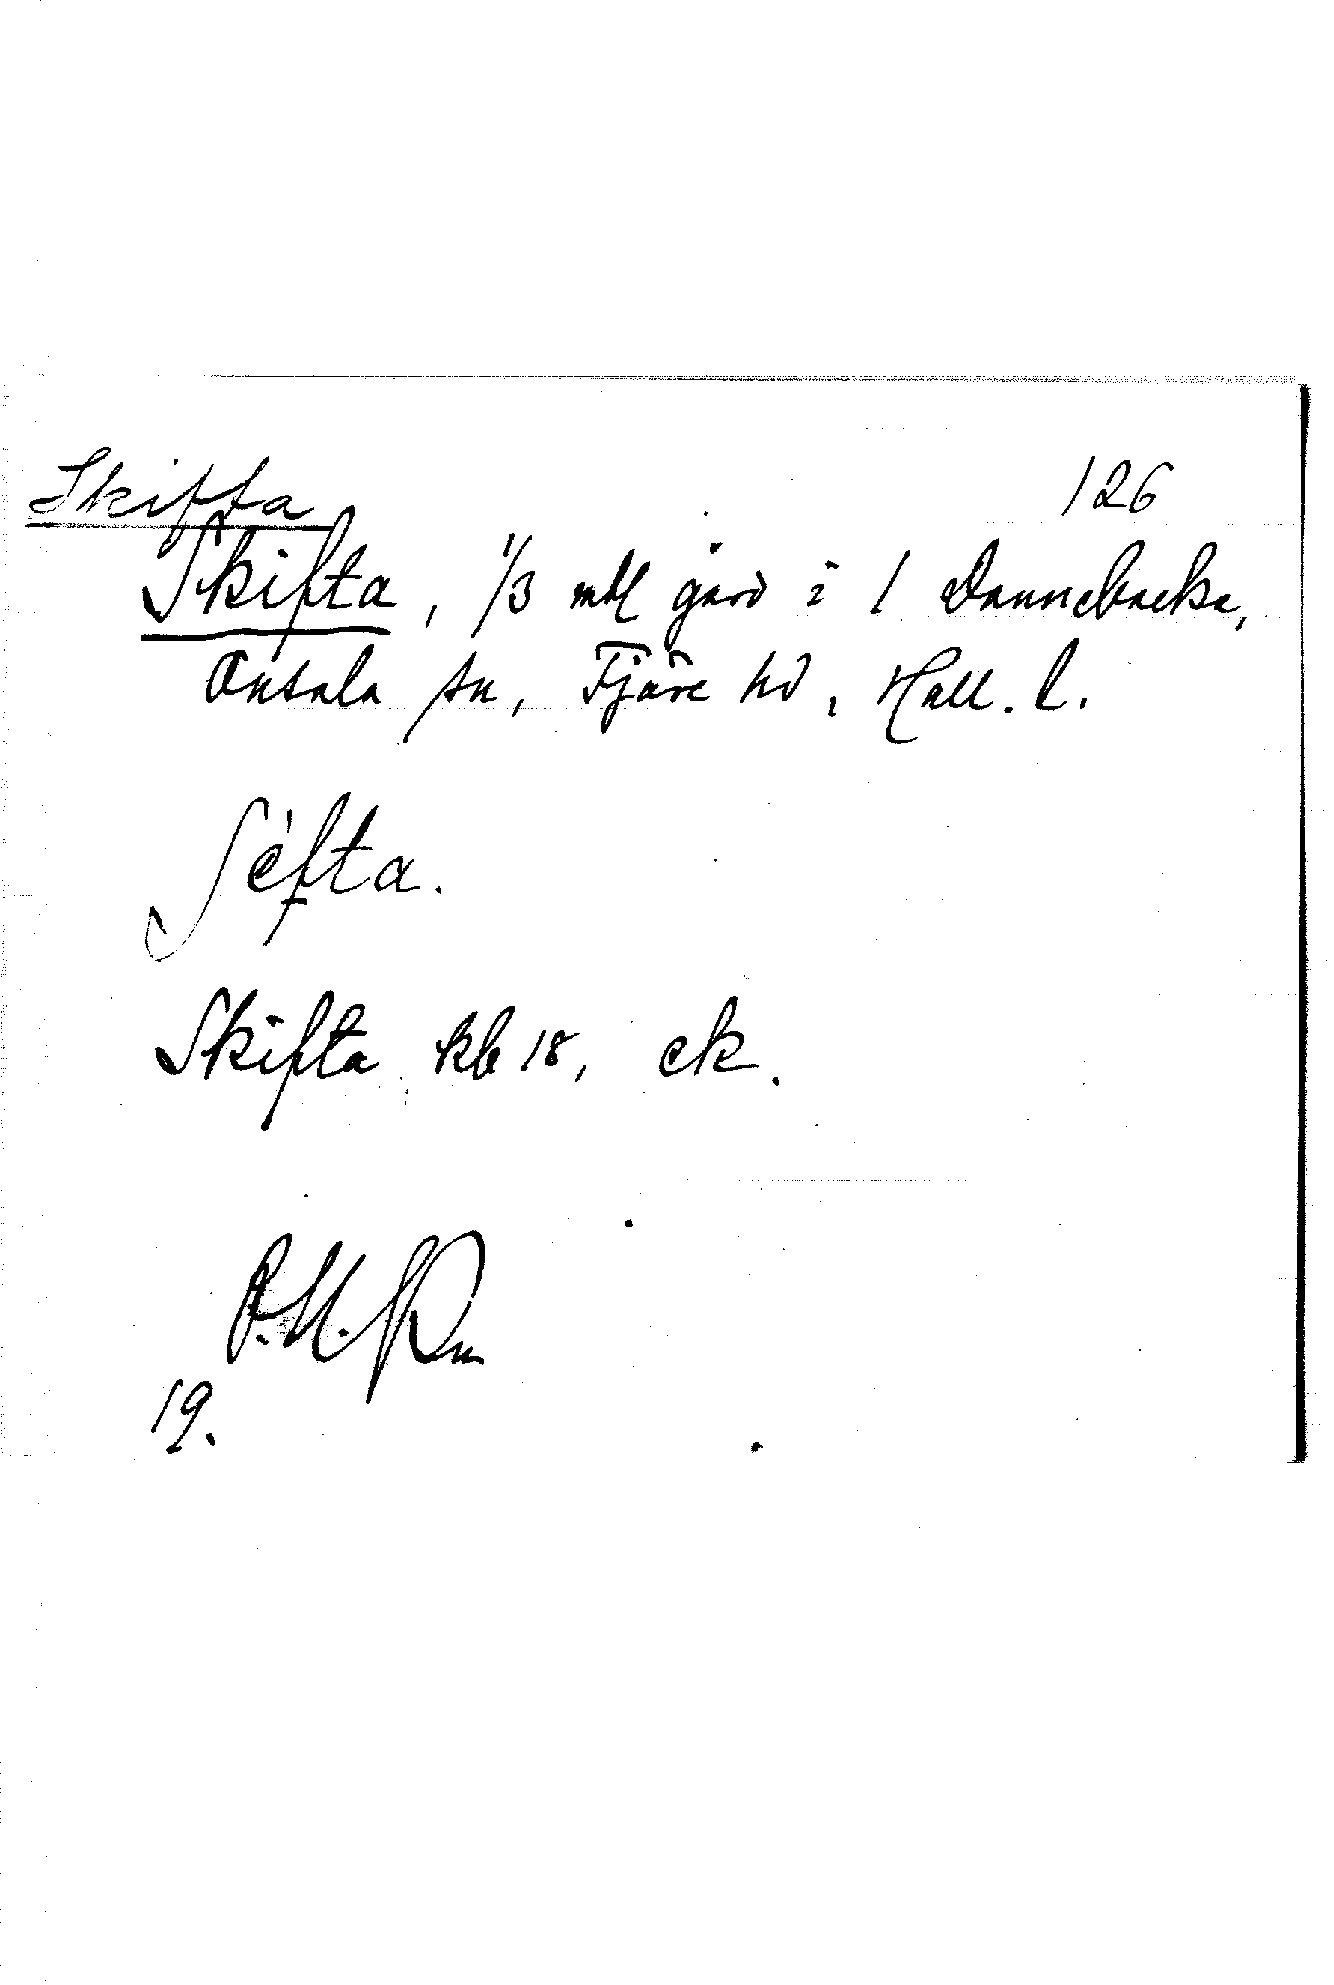 Skifta 126
Skifta, 1/3 mtl gård i 1 Dannebacka,
Onsala sn, Fjäre hd, Hall. l.
ʃèfta.
Skifta kb 18, ek.
19.